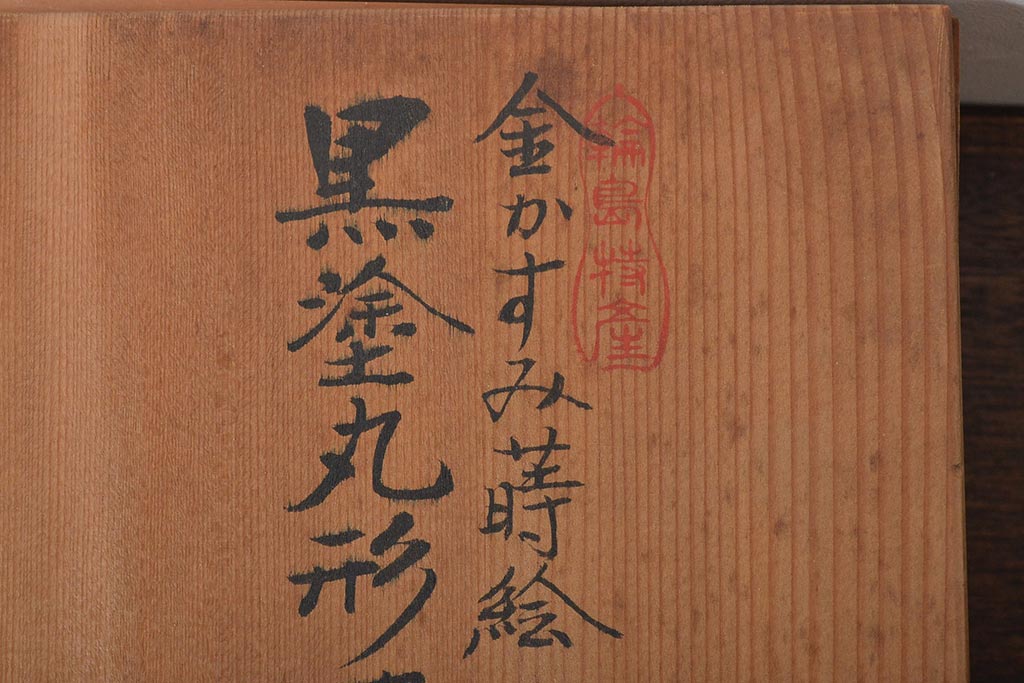 輪島特産
金かすみ蒔絵
黒塗丸形